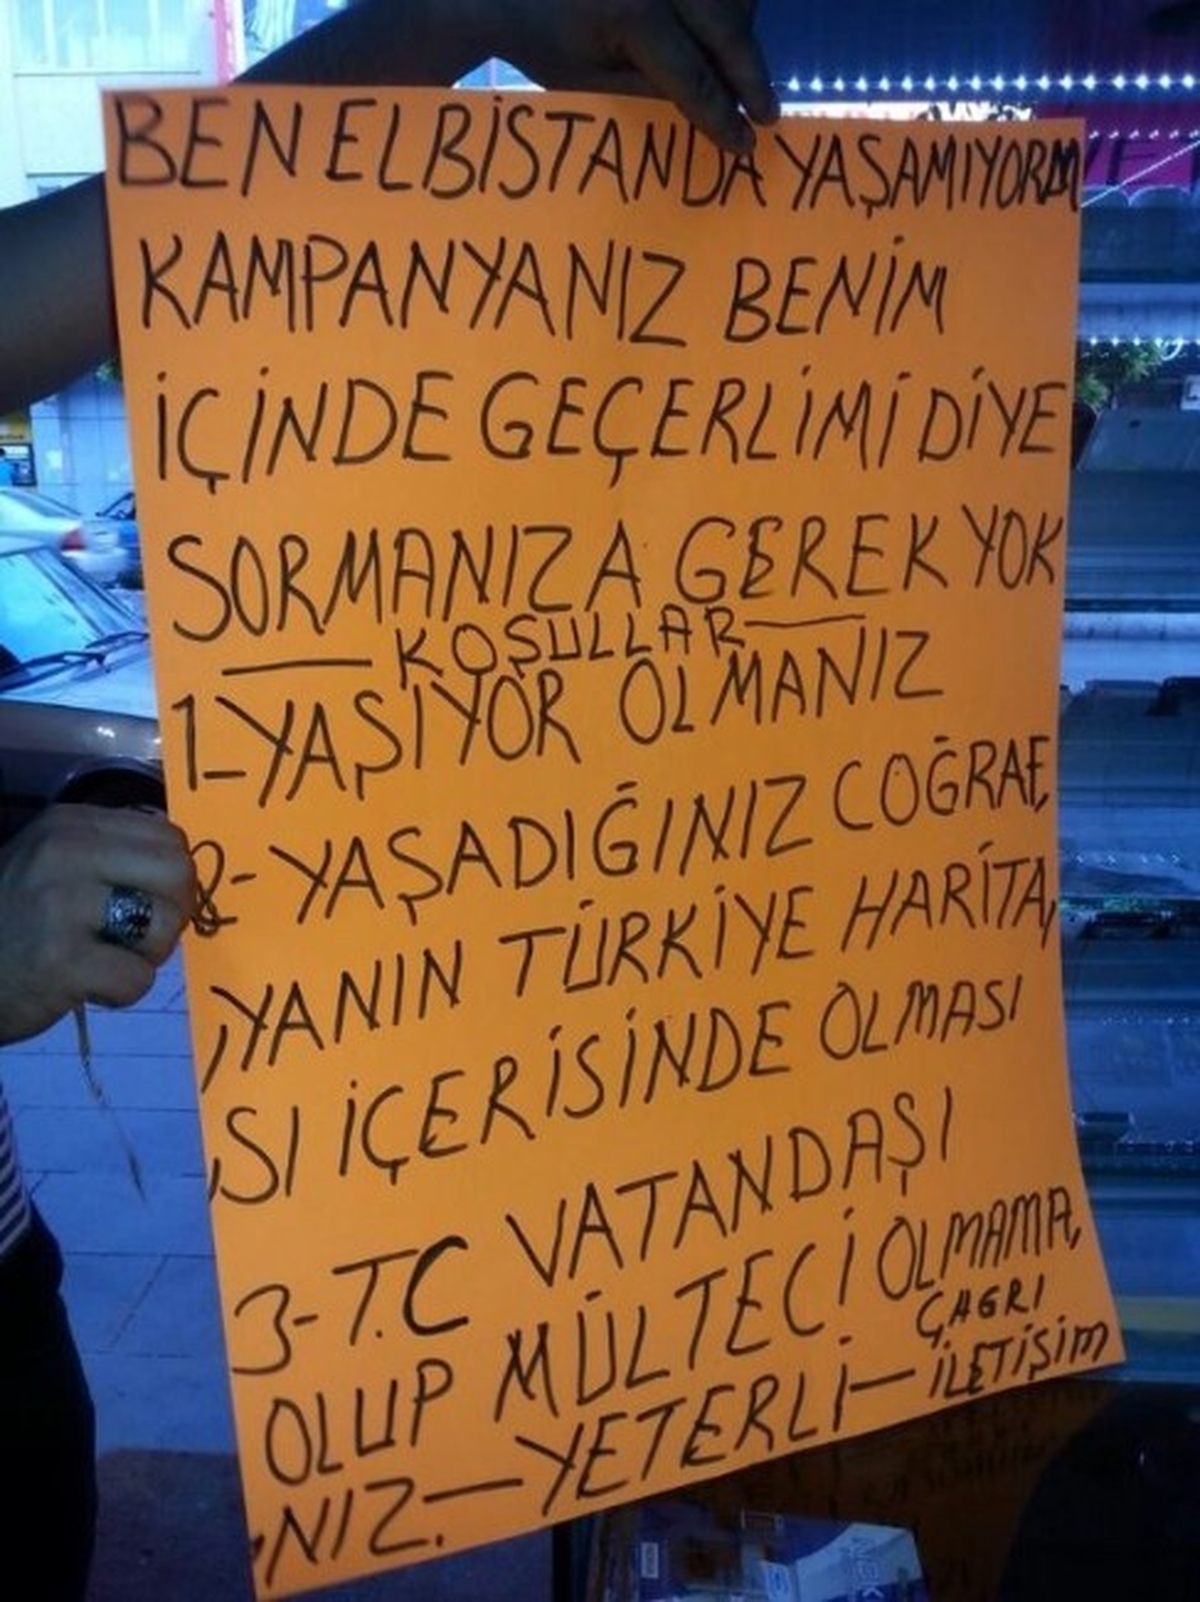 BEN ELBİSTANDA YAŞAMIYORUM
KAMPANYANIZ BENİM
İÇİNDE GEÇERLİMİ DİYE
SORMANIZA GEREK YOK
— KOŞULLAR —
1-YAŞIYOR OLMANIZ
2-YAŞADIĞINIZ COĞRAF,
,YANIN TÜRKİYE HARİTA,
,SI İÇERİSİNDE OLMASI
3-T.C VATANDAŞI
OLUP MÜLTECİ OLMAMA,
,NIZ.—YETERLİ—
ÇAGRI
İLETİŞİM